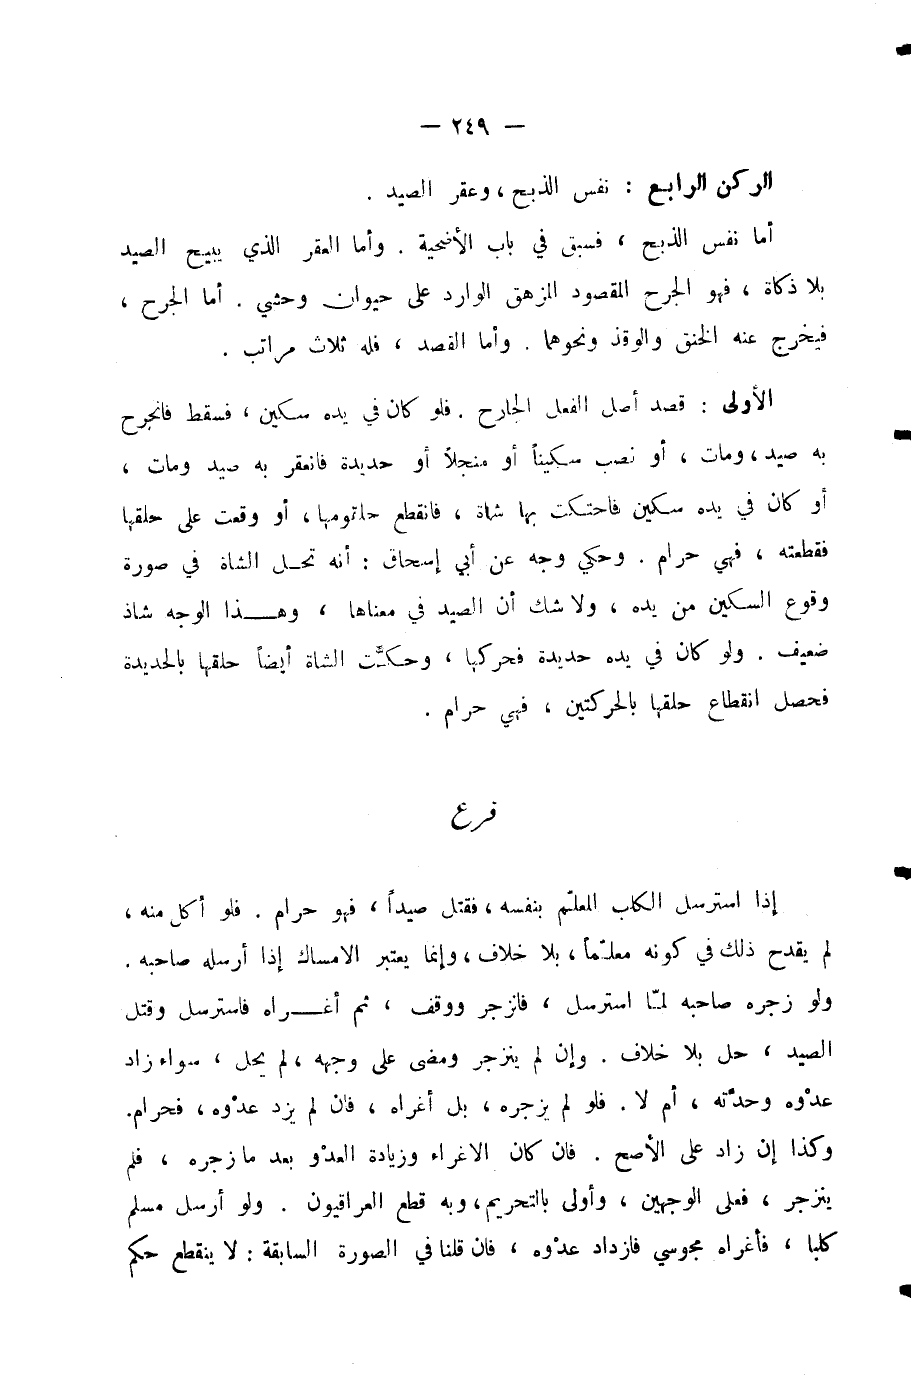 — ٢٤٩ —
الركن الرابع : نفس الذبح ، وعقر الصيد .
أما نفس الذبح ، فسبق في باب الأضحية . وأما العقر الذي يبيح الصيد
بلا ذكاة ، فهو الجرح المقصود المزهق الوارد على حيوان وحشي . أما الجرح ،
فيخرج عنه الخنق والوقذ ونحوهما . وأما القصد ، فله ثلاث مراتب .
الأولى : قصد أصل الفعل الجارح . فلو كان في يده سكين ، فسقط فانجرح
به صيد ، ومات ، أو نصب سكيناً أو منجلاً أو حديدة فانعقر به صيد ومات ،
أو كان في يده سكين فاحتكت بها شاة ، فانقطع حلقومها ، أو وقعت على حلقها
فقطعته ، فهي حرام . وحكي وجه عن أبي إسحاق : أنه تحل الشاة في صورة
وقوع السكين من يده ، ولا شك أن الصيد في معناها ، وهـذا الوجه شاذ
ضعيف . ولو كان في يده حديدة فحركها ، وحكَّت الشاة أيضاً حلقها بالحديدة
فحصل انقطاع حلقها بالحركتين ، فهي حرام .
فرع
إذا استرسل الكلب المعلّم بنفسه ، فقتل صيداً ، فهو حرام . فلو أكل منه ،
لم يقدح ذلك في كونه معلّماً ، بلا خلاف ، وإنما يعتبر الامساك إذا أرسله صاحبه .
ولو زجره صاحبه لمّا استرسل ، فانزجر ووقف ، ثم أغـراه فاسترسل وقتل
الصيد ، حل بلا خلاف . وإن لم ينزجر ومضى على وجهه ، لم يحل ، سواء زاد
عدْوه وحدَّته ، أم لا . فلو لم يزجره ، بل أغراه ، فان لم يزد عدْوه ، فحرام.
وكذا إن زاد على الأصح . فان كان الاغراء وزيادة العدْو بعد ما زجره ، فلم
ينزجر ، فعلى الوجهين ، وأولى بالتحريم ، وبه قطع العراقيون . ولو أرسل مسلم
كلبا ، فأغراه مجوسي فازداد عدْوه ، فان قلنا في الصورة السابقة : لا ينقطع حكم